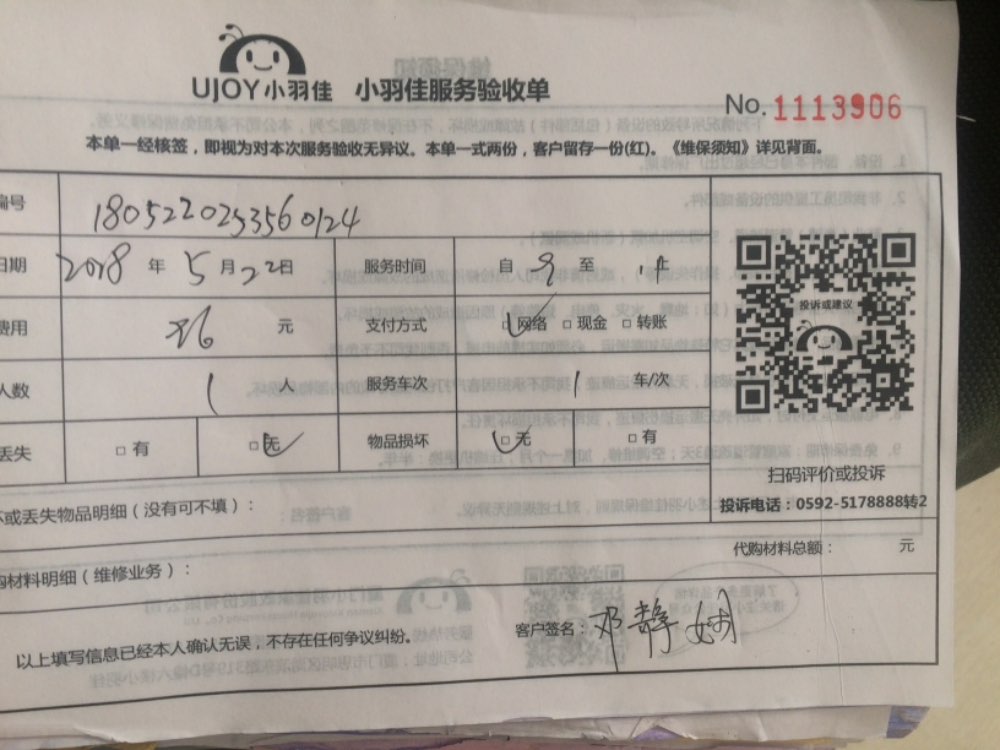 UJOY小羽佳 小羽佳服务验收单
No. 1113906
本单一经核签，即视为对本次服务验收无异议。本单一式两份，客户留存一份(红)。《维保须知》详见背面。
编号 1805220253560124
日期 2018 年 5 月 22 日 服务时间 自 9 至
投诉或建议
费用 元 支付方式 网络 □ 现金 □ 转账
人数 1 人 服务车次 1 车/次
丢失 □ 有 □ 无 物品损坏 □ 无 □ 有
扫码评价或投诉
投诉电话：0592-5178888转2
坏或丢失物品明细（没有可不填）：
代购材料总额： 元
购材料明细（维修业务）：
客户签名：邓静娴
以上填写信息已经本人确认无误，不存在任何争议纠纷。